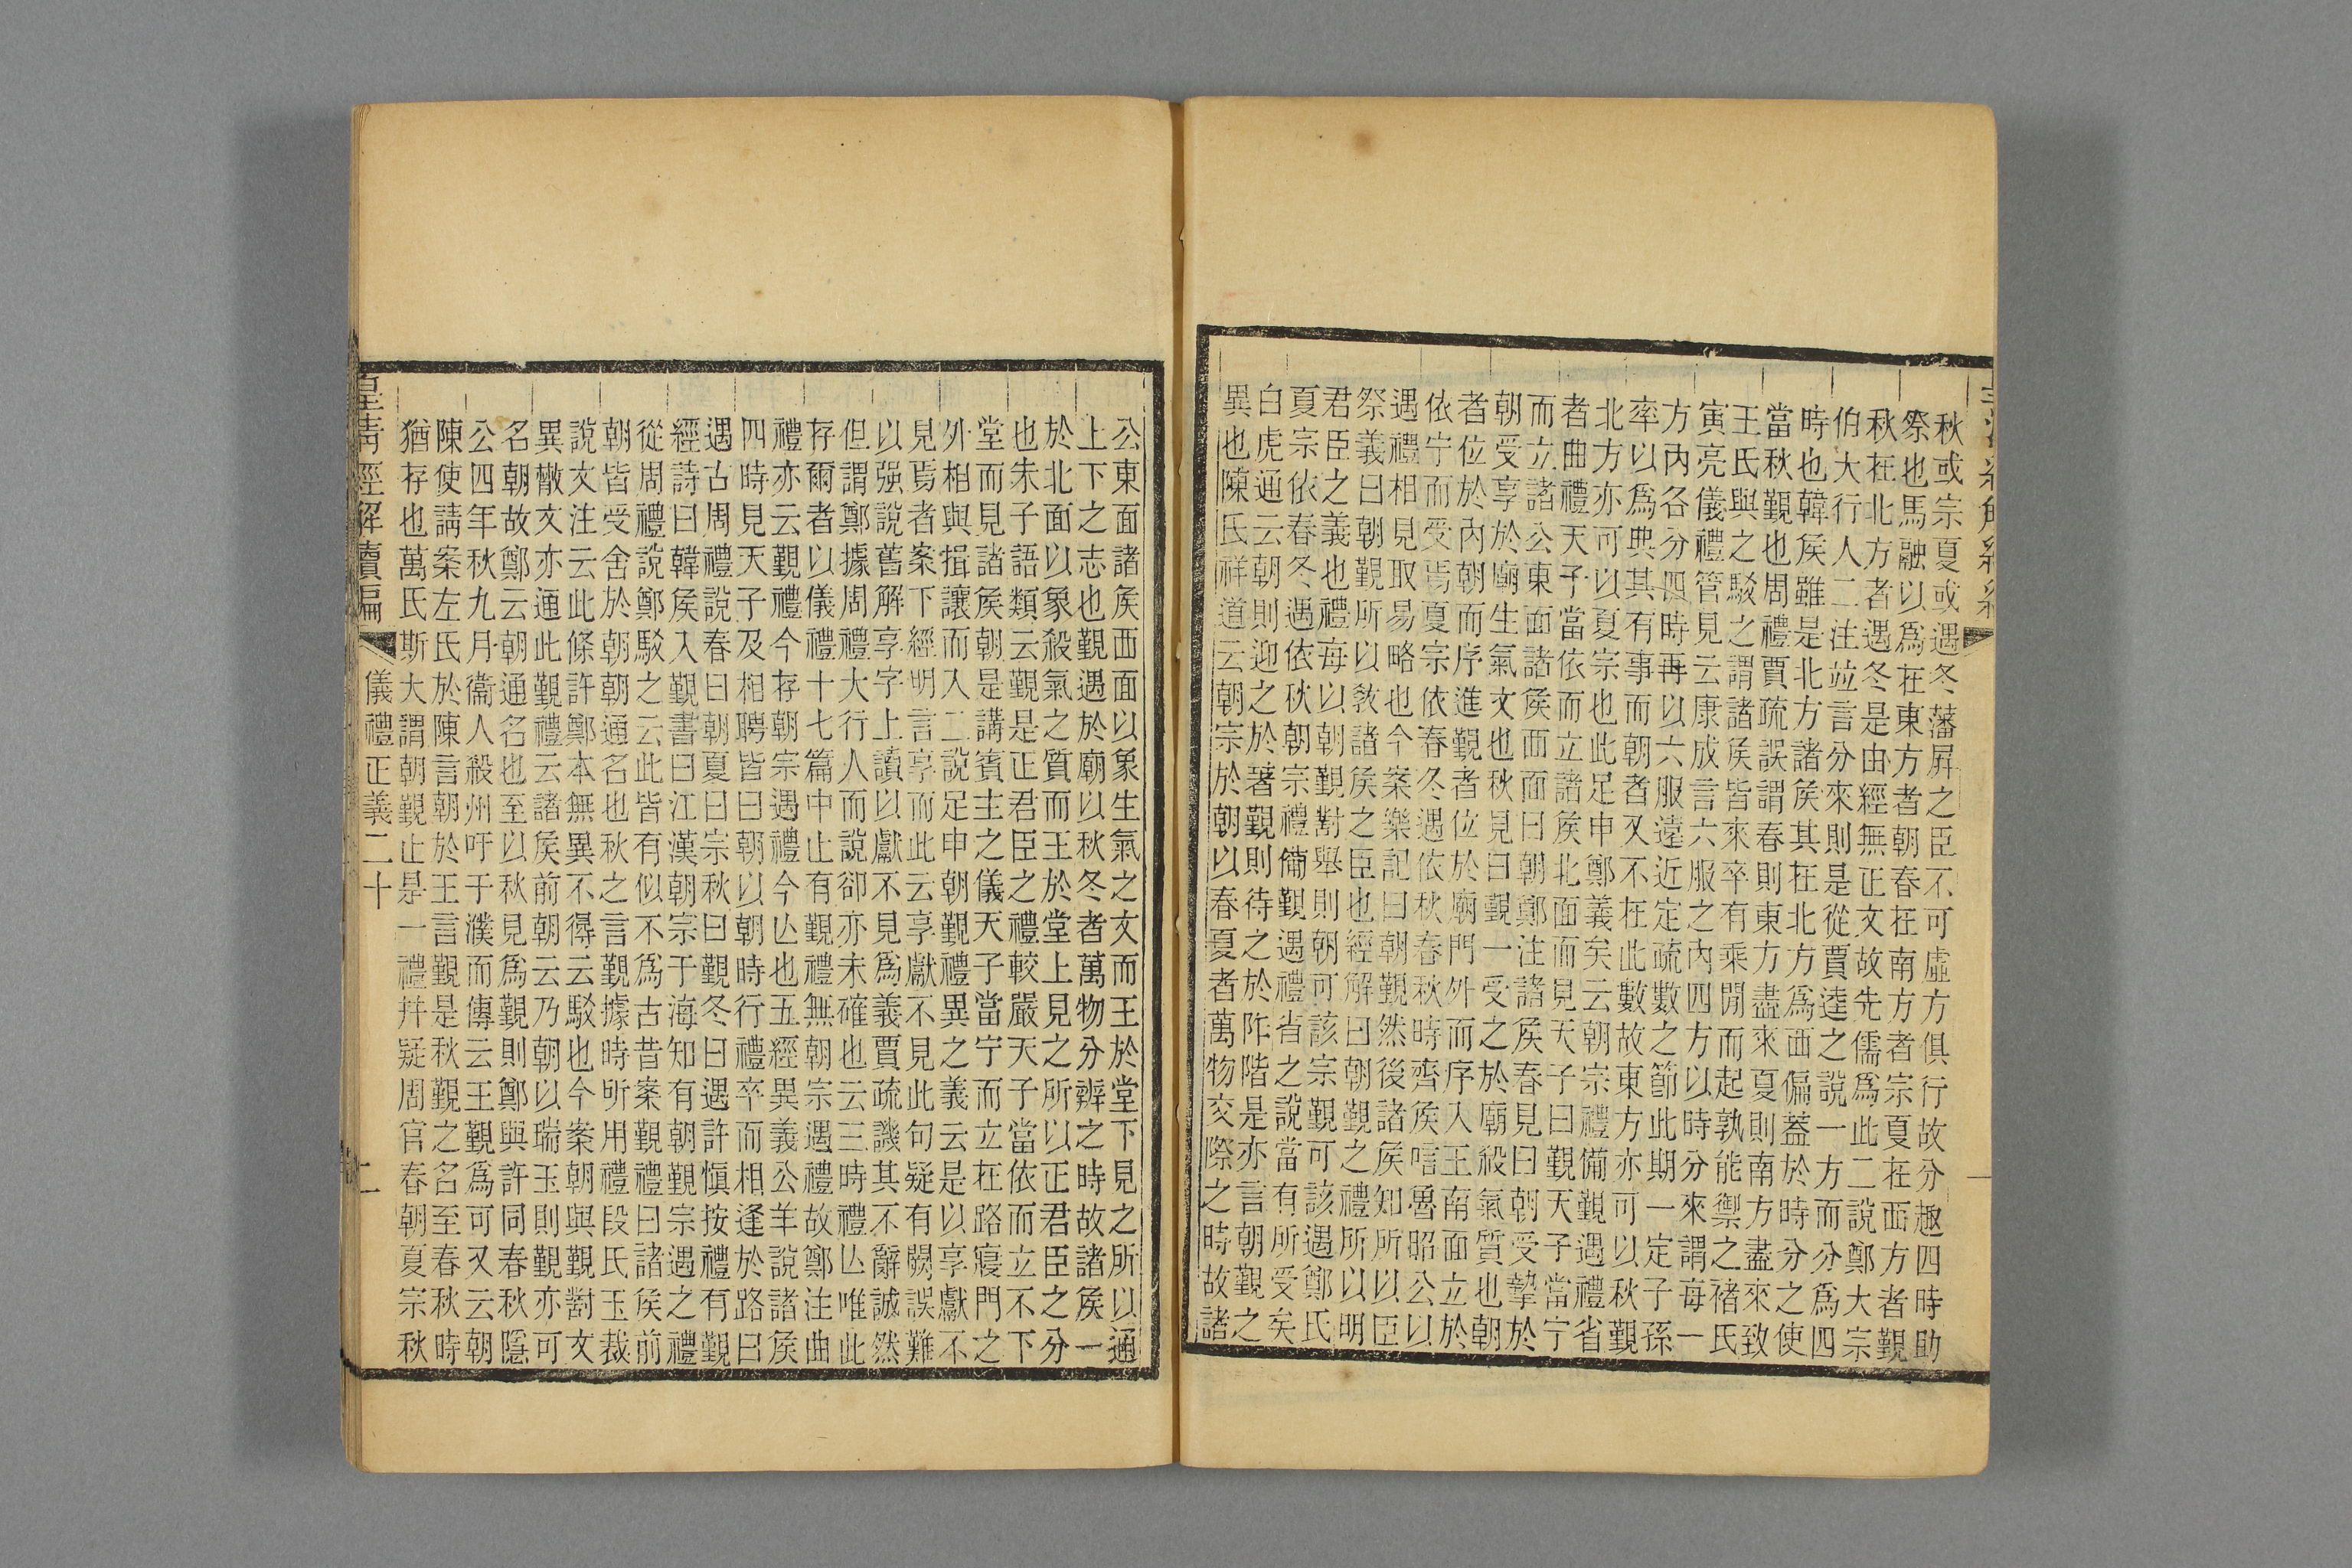 秋或宗夏或遇冬藩屛之臣不可虛方俱行故分趣四時助
祭也馬融以爲在東方者朝春在南方者宗夏在西方者覲
秋在北方者遇冬是由經無正文故先儒爲此二說鄭大宗
伯大行人二注竝言分來則是從賈逵之說一方而分爲四
時也韓侯雖是北方諸侯其在北方爲西偏蓋於時分之使
當秋覲也周禮賈疏誤謂春則東方盡來夏則南方盡來致
王氏與之駁之謂諸侯皆來卒有乘閒而起孰能禦之褚氏
寅亮儀禮管見云康成言六服之內四方以時分來謂每一
方內各分四時再以六服遠近定疏數之節此期一定子孫
率以爲典其有事而朝者又不在此數故東方亦可以秋覲
北方亦可以夏宗也此足申鄭義矣云朝宗禮備覲遇禮省
者曲禮天子當依而立諸侯北面而見天子曰覲天子當宁
而立諸公東面諸侯西面曰朝鄭注諸侯春見曰朝受摯於
朝受享於廟生氣文也秋見曰覲一受之於廟殺氣質也朝
者位於內朝而序進覲者位於廟門外而序入王南面立於
依宁而受焉夏宗依春冬遇依秋春秋時齊侯唁魯昭公以
遇禮相見取易略也今案樂記曰朝覲然後諸侯知所以臣
祭義曰朝覲所以敎諸侯之臣也經解曰朝覲之禮所以明
君臣之義也禮每以朝覲對舉則朝可該宗覲可該遇鄭氏
夏宗依春冬遇依秋朝宗禮備覲遇禮省之說當有所受矣
白虎通云朝則迎之於著覲則待之於阼階是亦言朝覲之
異也陳氏祥道云朝宗於朝以春夏者萬物交際之時故諸
公東面諸侯西面以象生氣之文而王於堂下見之所以通
上下之志也覲遇於廟以秋冬者萬物分辨之時故諸侯一
於北面以象殺氣之質而王於堂上見之所以正君臣之分
也朱子語類云覲是正君臣之禮較嚴天子當依而立不下
堂而見諸侯朝是講賓主之儀天子當宁而立在路寢門之
外相與揖讓而入二說足申朝覲禮異之義云是以享獻不
見焉者案下經明言享而此云享獻不見此句疑有闕誤難
以强說舊解享字上讀以獻不見爲義賈疏譏其不辭誠然
但謂鄭據周禮大行人而說卻亦未確也云三時禮亾唯此
存爾者以儀禮十七篇中止有覲禮無朝宗遇禮故鄭注曲
禮亦云覲禮今存朝宗遇禮今亾也五經異義公羊說諸侯
四時見天子及相聘皆曰朝以朝時行禮卒而相逢於路曰
遇古周禮說春曰朝夏曰宗秋曰覲冬曰遇許愼按禮有覲
經詩曰韓侯入覲書曰江漢朝宗于海知有朝覲宗遇之禮
從周禮說鄭駁之云此皆有似不爲古昔案覲禮曰諸侯前
朝皆受舍於朝朝通名也秋之言覲據時所用禮段氏玉裁
說文注云此條許鄭本無異不得云駁也今案朝與覲對文
異㪚文亦通此覲禮云諸侯前朝云乃朝以瑞玉則覲亦可
名朝故鄭云朝通名也至以秋見爲覲則鄭與許同春秋隱
公四年秋九月衞人殺州吁于濮而傳云王覲爲可又云朝
陳使請案左氏於陳言朝於王言覲是秋覲之名至春秋時
猶存也萬氏斯大謂朝覲止是一禮幷疑周官春朝夏宗秋
皇淸經解續編 儀禮正義二十 二